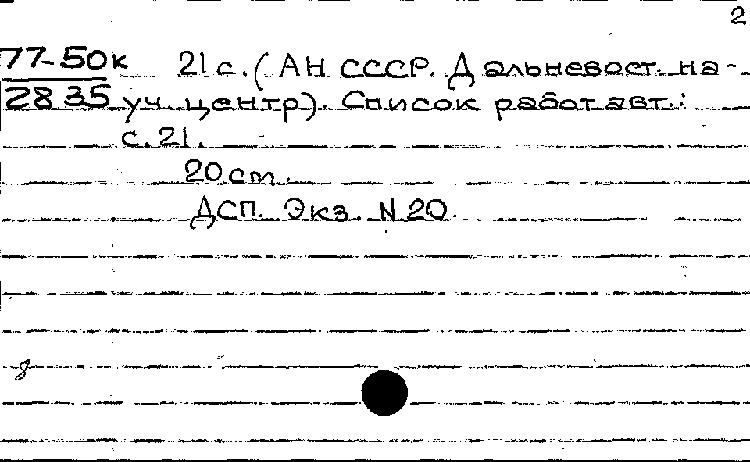 2
77-50к 21 с. (АН СССР. Дальневост. на-
2835 уч. центр). Список работ авт.:
с. 21.
20 см.
ДСП. Экз. N 20.
8